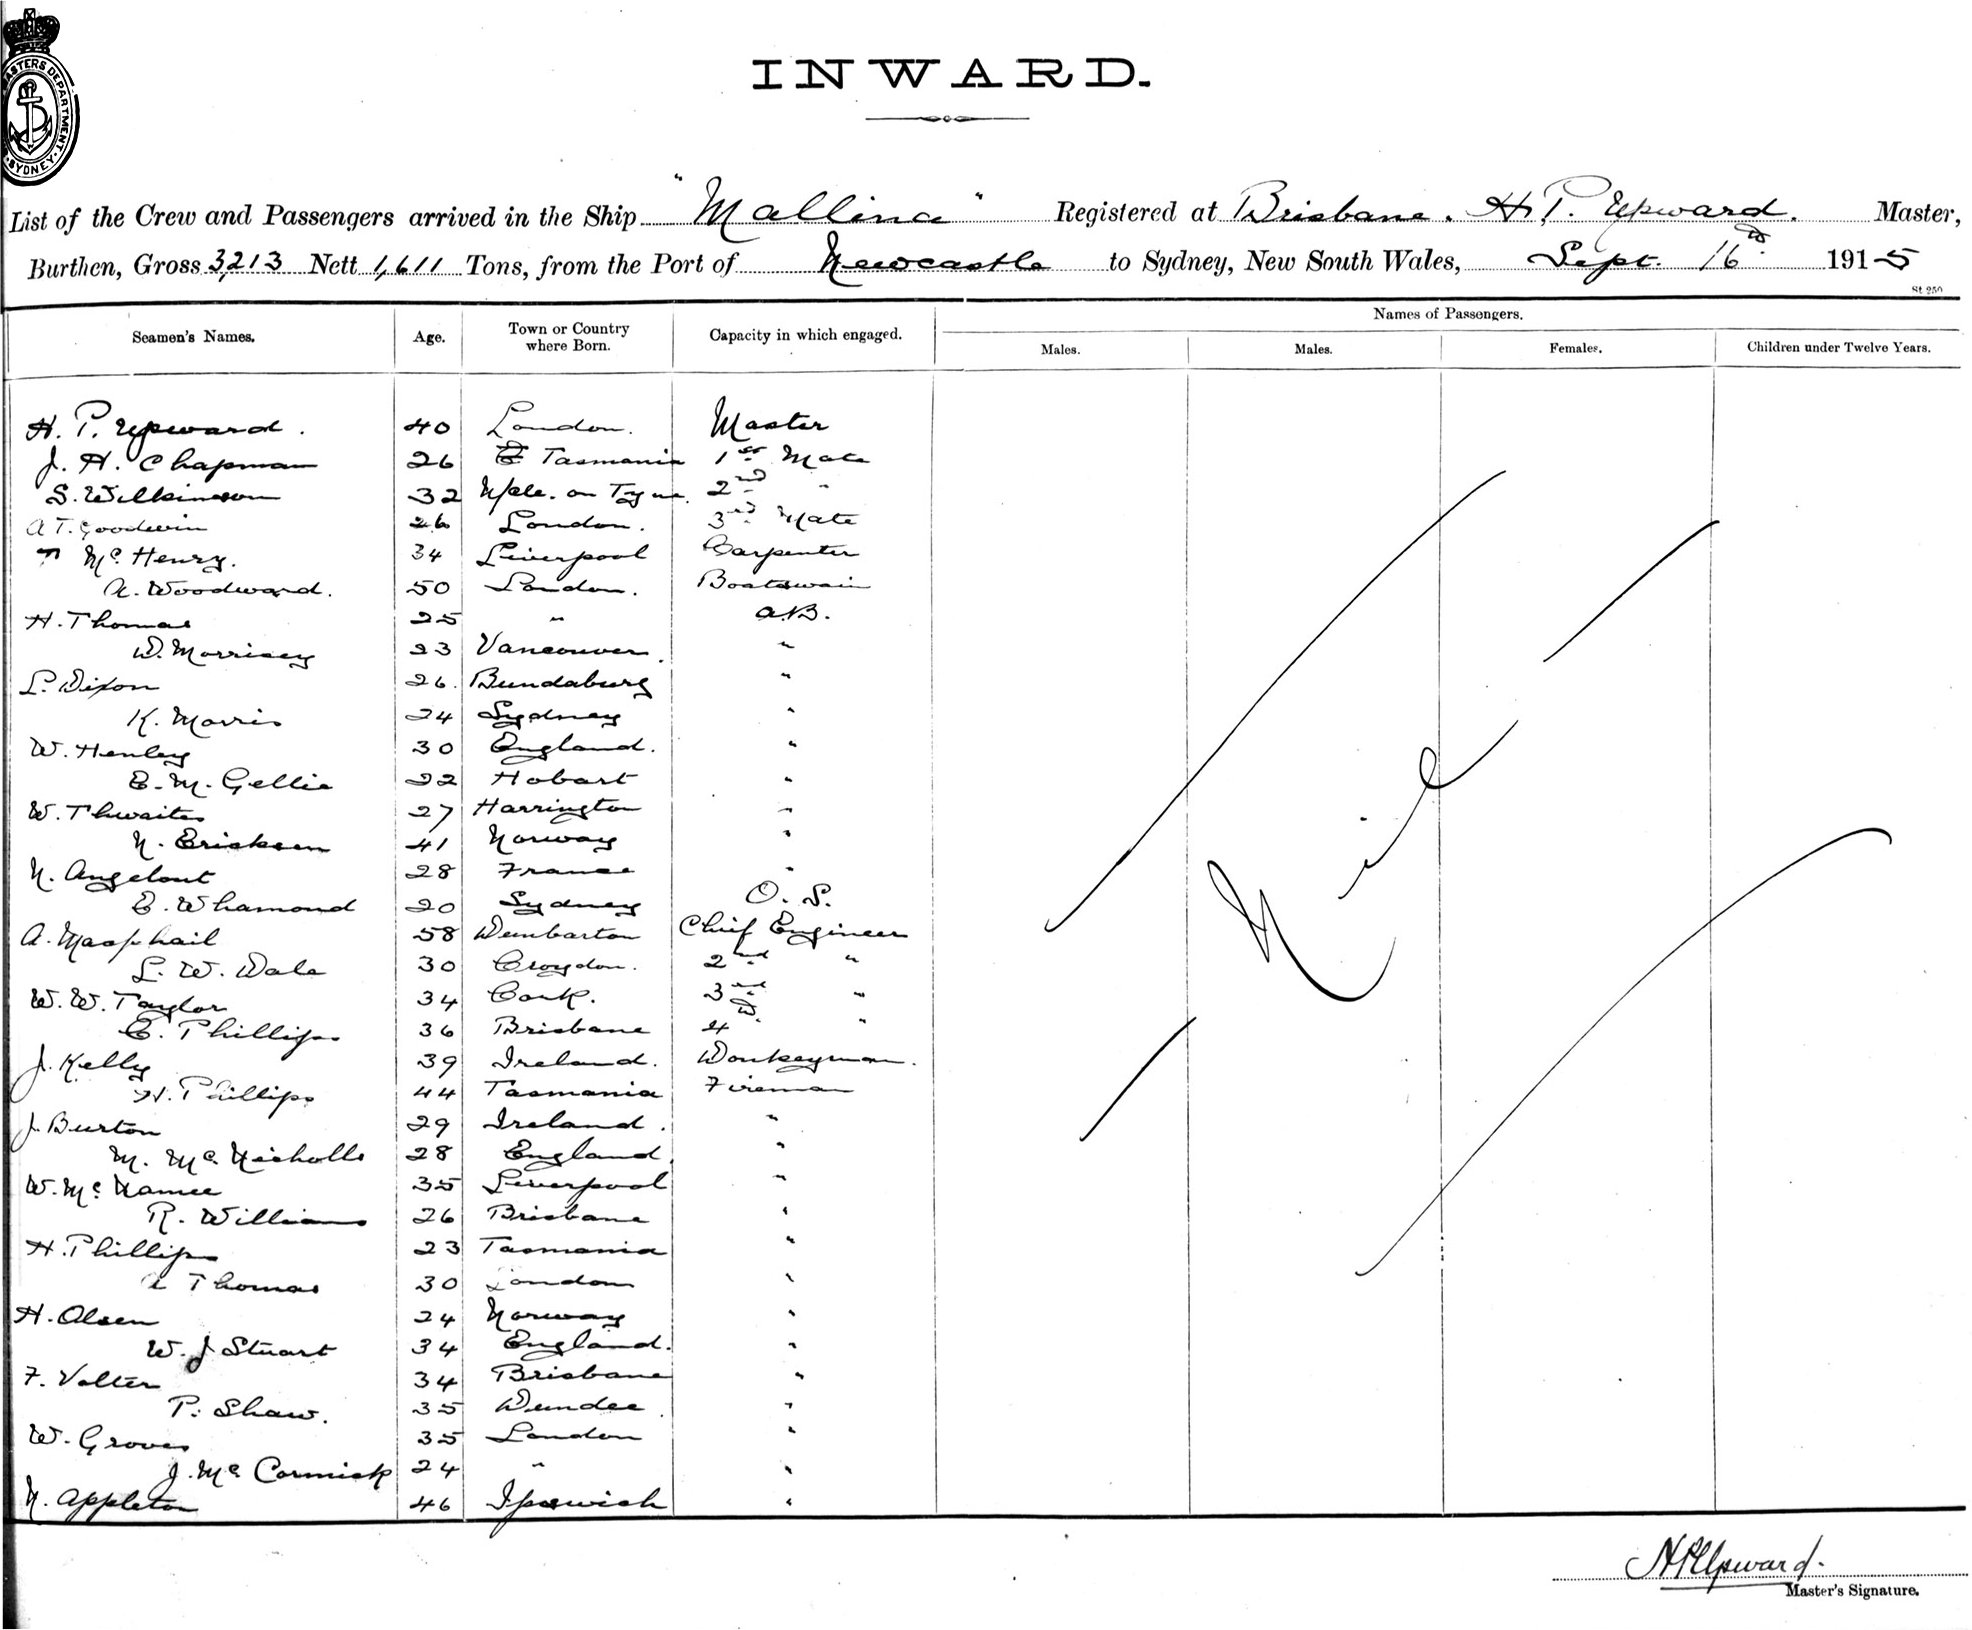 MASTERS DEPARTMENT. SYDNEY.
INWARD.
List of the Crew and Passengers arrived in the Ship "Mallina" Registered at Brisbane. H. P. Upward. Master,
Burthen, Gross 3,213 Nett 1,611 Tons, from the Port of Newcastle to Sydney, New South Wales, Sept. 16th 1915
St 250
Seamen's Names. Age. Town or Country where Born. Capacity in which engaged. Names of Passengers.
Males. Males. Females. Children under Twelve Years.
H. P. Upward. 40 London. Master
J. H. Chapman 26 Tasmania 1st Mate
S. Wilkinson 32 N/cle. on Tyne. 2nd "
A T. Goodwin 26 London. 3rd Mate
Mc Henry. 34 Liverpool Carpenter
A. Woodward. 50 London. Boatswain
H. Thomas 25 " A.B.
D. Morrisey 23 Vancouver. "
L. Dixon 26. Bundaburg "
K. Morris 24 Sydney "
W. Henley 30 England. "
E. M. Gellie 22 Hobart "
W. Thwaites 27 Harrington "
N. Ericksen 41 Norway "
N. Angelout 28 France "
E. Whamond 20 Sydney O. S.
A. Macphail 58 Dumbarton Chief Engineer
L. W. Dale 30 Croydon. 2nd "
W. W. Taylor 34 Cork. 3rd "
E. Phillips 36 Brisbane 4th "
J. Kelly 39 Ireland. Donkeyman.
H. Phillips 44 Tasmania Fireman
J. Burton 29 Ireland. "
M. Mc Nicholls 28 England. "
W. Mc Namee 35 Liverpool "
R. Williams 26 Brisbane "
H. Phillips 23 Tasmania "
A Thomas 30 London "
H. Olsen 24 Norway "
W. J Stuart 34 England. "
F. Volter 34 Brisbane "
P. Shaw. 35 Dundee. "
W. Groves 35 London "
J. Mc Cormick 24 " "
N. Appleton 46 Ipswich "
Nil
H P Upward.
Master's Signature.